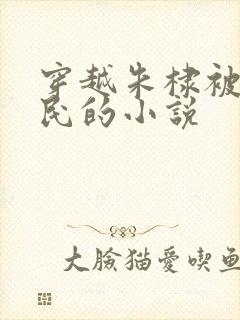 穿越朱棣被
民的小説
大臉猫愛喫鱼